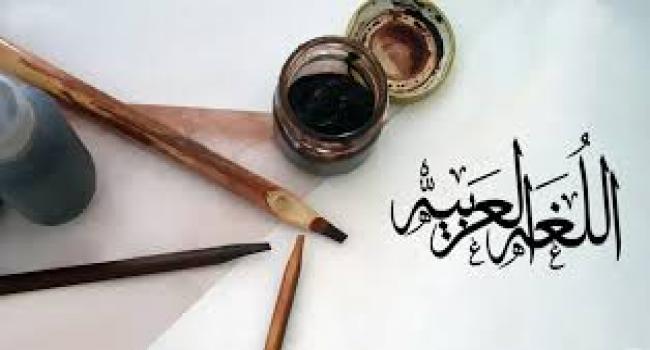 اللُغَة العَربيّة